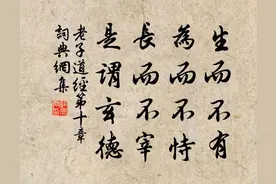 生而不有
為而不恃
長而不宰
是謂玄德
老子道經第十章
詞典網集